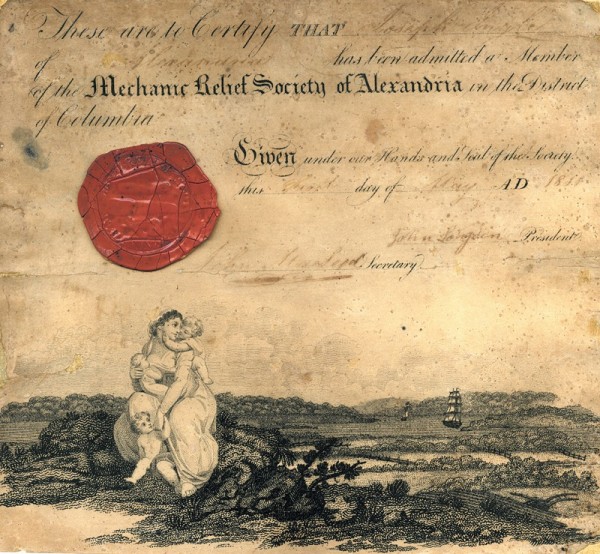 These are to Certify THAT Joseph
of Alexandria has been admitted a Member
of the Mechanic Relief Society of Alexandria in the District
of Columbia
Given under our Hands and Seal of the Society
this first day of May AD
John President
Secretary